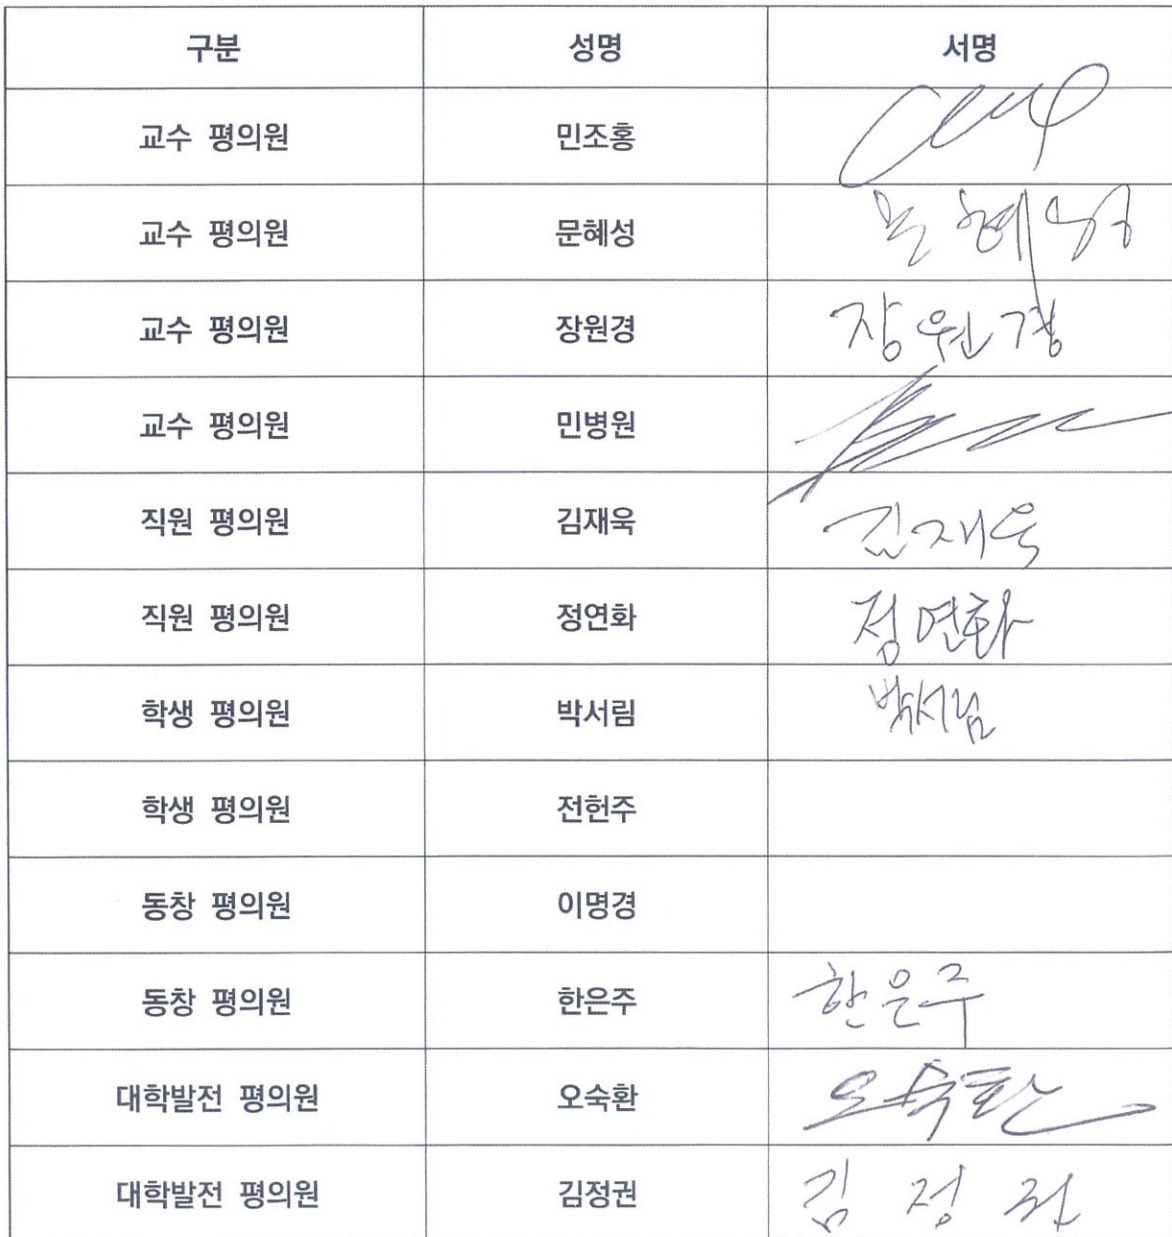 구분 성명 서명
교수 평의원 민조홍
교수 평의원 문혜성 문혜성
교수 평의원 장원경 장원경
교수 평의원 민병원
직원 평의원 김재욱 김재욱
직원 평의원 정연화 정연화
학생 평의원 박서림 박서림
학생 평의원 전헌주
동창 평의원 이명경
동창 평의원 한은주 한은주
대학발전 평의원 오숙환 오숙환
대학발전 평의원 김정권 김정권